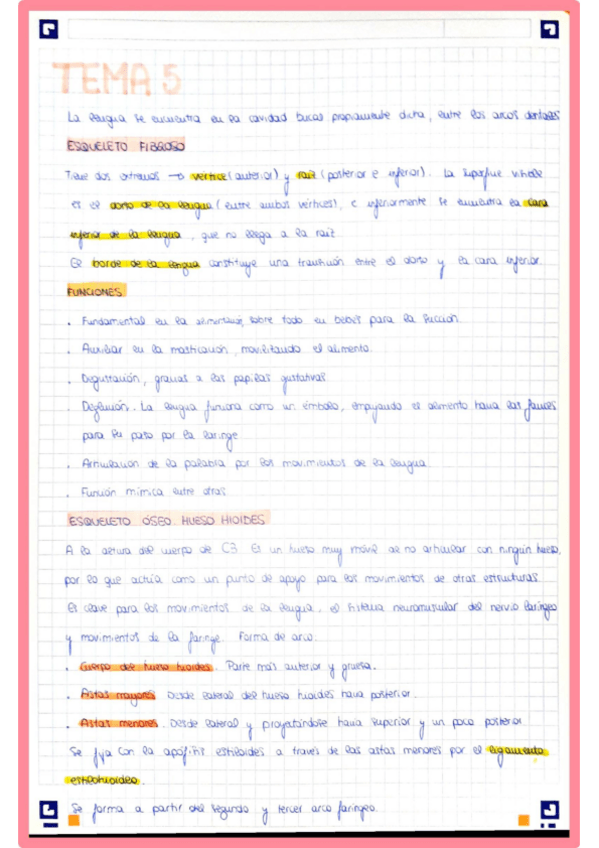 TEMA 5
La lengua se encuentra en la cavidad bucal propiamente dicha, entre los arcos dentales
ESQUELETO FIBROSO
Tiene dos extremos → vértice (anterior) y raíz (posterior e inferior). La superficie visible
es el dorso de la lengua (entre ambos vértices), e inferiormente se encuentra la cara
inferior de la lengua, que no llega a la raíz.
El borde de la lengua constituye una transición entre el dorso y la cara inferior.
FUNCIONES
. Fundamental en la alimentación, sobre todo en bebés para la succión.
. Auxiliar en la masticación, movilizando el alimento.
. Degustación, gracias a las papilas gustativas
. Deglución. La lengua funciona como un émbolo, empujando el alimento hacia las fauces
para su paso por la laringe
. Articulación de la palabra por los movimientos de la lengua
. Función mímica entre otras
ESQUELETO ÓSEO. HUESO HIOIDES
A la altura del cuerpo de C3. Es un hueso muy móvil al no articular con ningún hueso,
por lo que actúa como un punto de apoyo para los movimientos de otras estructuras.
Es clave para los movimientos de la lengua, el sistema neuromuscular del nervio laríngeo
y movimientos de la faringe. Forma de arco.
. Cuerpo del hueso hioides. Parte más anterior y gruesa.
. Astas mayores. Desde lateral del hueso hioides hacia posterior.
. Astas menores. Desde lateral y proyectándose hacia superior y un poco posterior
Se fija con la apófisis estiloides a través de las astas menores por el ligamento
estilohioideo.
Se forma a partir del segundo y tercer arco faríngeo.